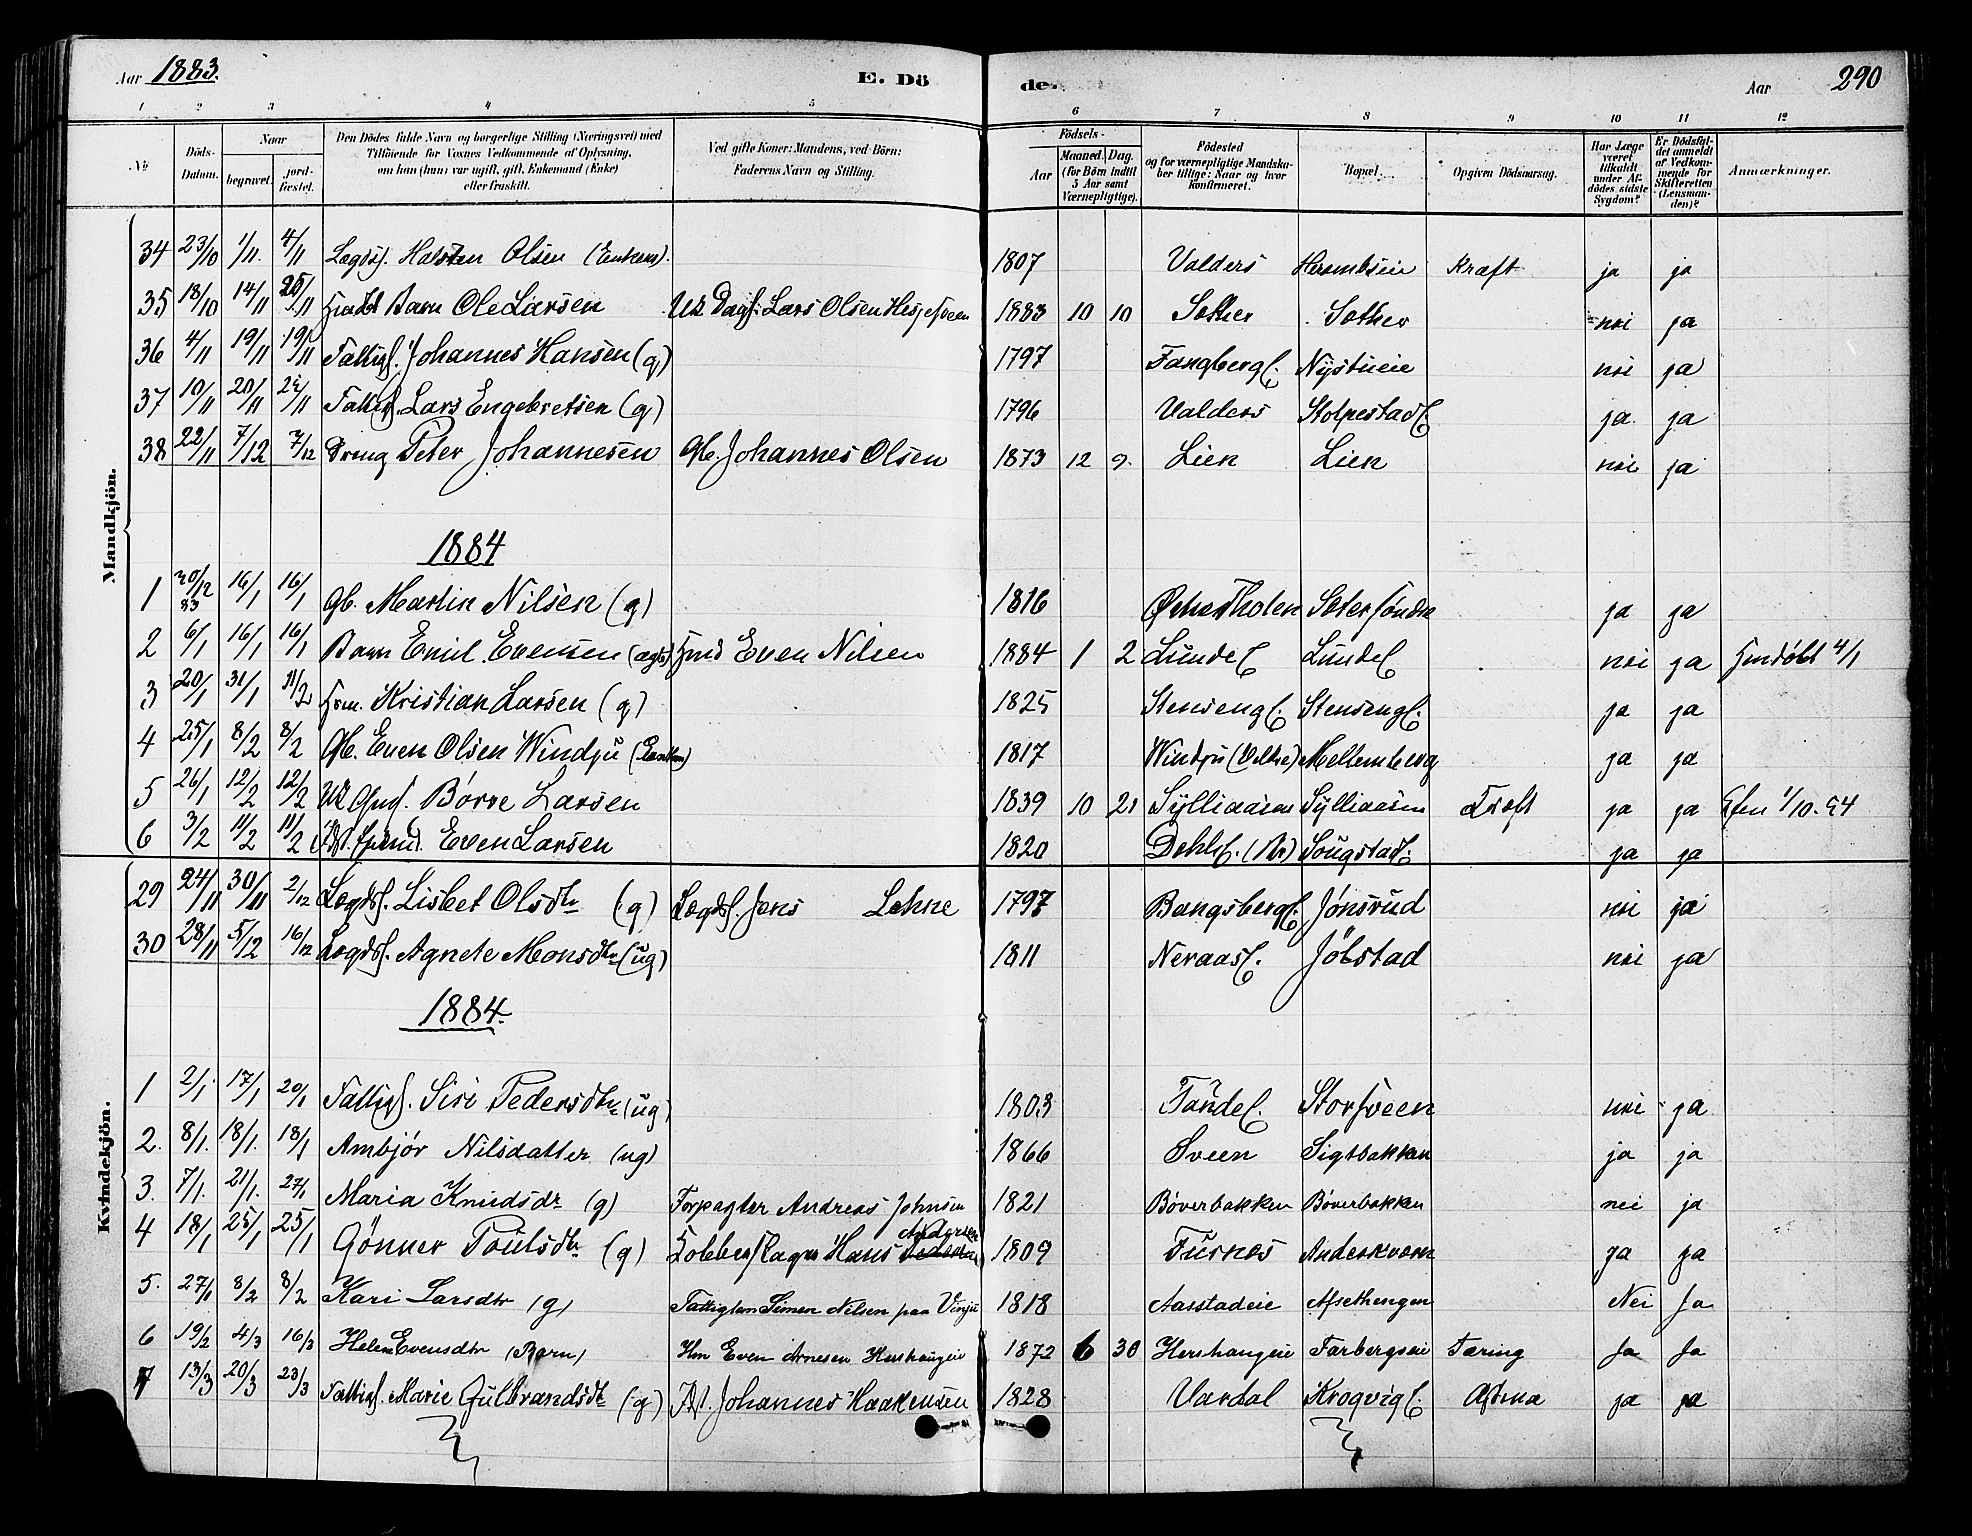 Aar 1883. E. Dö de. Aar 290
1 2 3 4 5 6 7 8 9 10 11 12
No Döds-Datum. Naar begravet. jordfæstet. Den Dödes fulde Navn og borgerlige Stilling (Næringsvei) med Tilföiende for Voxnes Vedkommende af Oplysning, om han (hun) var ugift, gift, Enkemand (Enke) eller fraskilt. Ved gifte Koner: Mandens, ved Börn: Faderens Navn og Stilling. Födsels- Aar Maaned. Dag. (for Börn indtil 5 Aar samt Værnepligtige). Födested og for værnepligtige Mandskaber tillige: Naar og hvor Konfirmeret. Bopæl. Opgiven Dödsaarsag. Har Læge været tilkaldt under Afdödes sidste Sygdom? Er Dödsfaldet anmeldt af Vedkommende for Skifteretten (Lensmanden)? Anmærkninger.
Mandkjön.
34 23/10 1/11. 4/11 Lægdsl. Halsten Olsen (Enkem). 1807 Valders Kraft ja ja
35 18/10 14/11 25/11 Barn Ole Larsen Lars Olsen 1883 10 10 Sether Sether nei ja
36 4/11 19/11 19/11 Fattigl. Johannes Hansen (g) 1797 Fangbergl. Nystueie nei ja
37 10/11 20/11 Fattigl. Lars Engebretsen (g) 1796 Valders Stolpestadl ja. ja
38 22/11 7/12 7/12 Dreng Peter Johannesen Gb. Johannes Olsen 1873 12 9. Lien Lien nei ja
1884
1 30/12 83 16/1 16/1 Gb. Martin Nilsen (g) 1816 Sæter söndre ja ja
2 6/1 16/1 16/1 Barn Emil Evensen (ægte) Hmd Even Nilsen 1884 1 2 Lundel Lundel nei ja Hmdøbt 4/1
3 20/1 31/1 11/2 Hrm. Kristian Larsen (g) 1825 Stensengl. Stensengl. ja ja
4 25/1 8/2 8/2 Gb. Even Olsen Windju (Enkem) 1817 Windju Mellemberg ja ja
5 26/1 12/2 12/2 Børre Larsen 1839 10 21 Sylliaasen Sylliaasen ja ja
6 3/2 11/2 11/2 Even Larsen 1820 Dehlil. Sougstadl. ja ja
Kvindekjön.
29 24/11 30/11 2/12 Lægdsl. Lisbet Olsdtr (g) Lægdsl. Jens Lehne 1797 Bangsbergl. Jönsrud nei ja
30 28/11 5/12 16/12 Lægdsl. Agnete Monsdtr (ug) 1811 Neraasl. Jölstad nei ja
1884.
1 2/1. 17/1 20/1 Fattigl. Siri Pedersdtr (ug) 1803 Tandel. Storsveen nei ja
2. 8/1. 18/1. 18/1 Ambjør Nilsdatter (ug) 1866 Sveen Sigtbakken ja ja
3. 7/1. 21/1. 27/1 Maria Knudsdr (g) Forpagter Andreas Johnsen 1821 Bøverbakken Bøverbakken nei ja
4 18/1 25/1 25/1 Gönner Poulsdtr (g) Kobberslager Hans Andersen 1809 Furnes Anderskværn ja ja
5. 27/1 8/2 8/2 Kari Larsdtr (g) Fattiglem Simen Nilsen paa Vinju 1818 Aasstadeie Afsethengen Nei Ja
6 19/2 4/3 16/3 Helene Evensdtr (Barn) Hm Even Arnesen Hershaugeie 1872 6 30 Hershaugeie Farbergseie Tæring Ja Ja
7 13/3 20/3 23/3 Fattigl. Marie Gulbrandsdtr (g) Johannes Haakensen 1828 Vardal Krogvigl. Astma ja ja